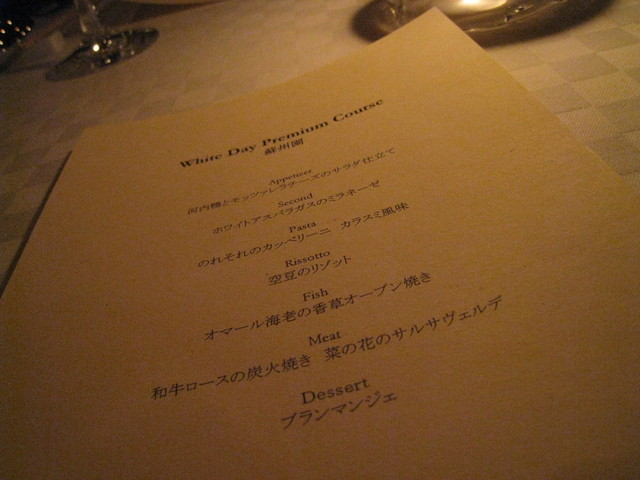 White Day Premium Course
蘇州園
Appetizer
河内鴨とモッツァレラチーズのサラダ仕立て
Second
ホワイトアスパラガスのミラネーゼ
Pasta
のれそれのカッペリーニ カラスミ風味
Rissotto
空豆のリゾット
Fish
オマール海老の香草オーブン焼き
Meat
和牛ロースの炭火焼き 菜の花のサルサヴェルデ
Dessert
ブランマンジェ